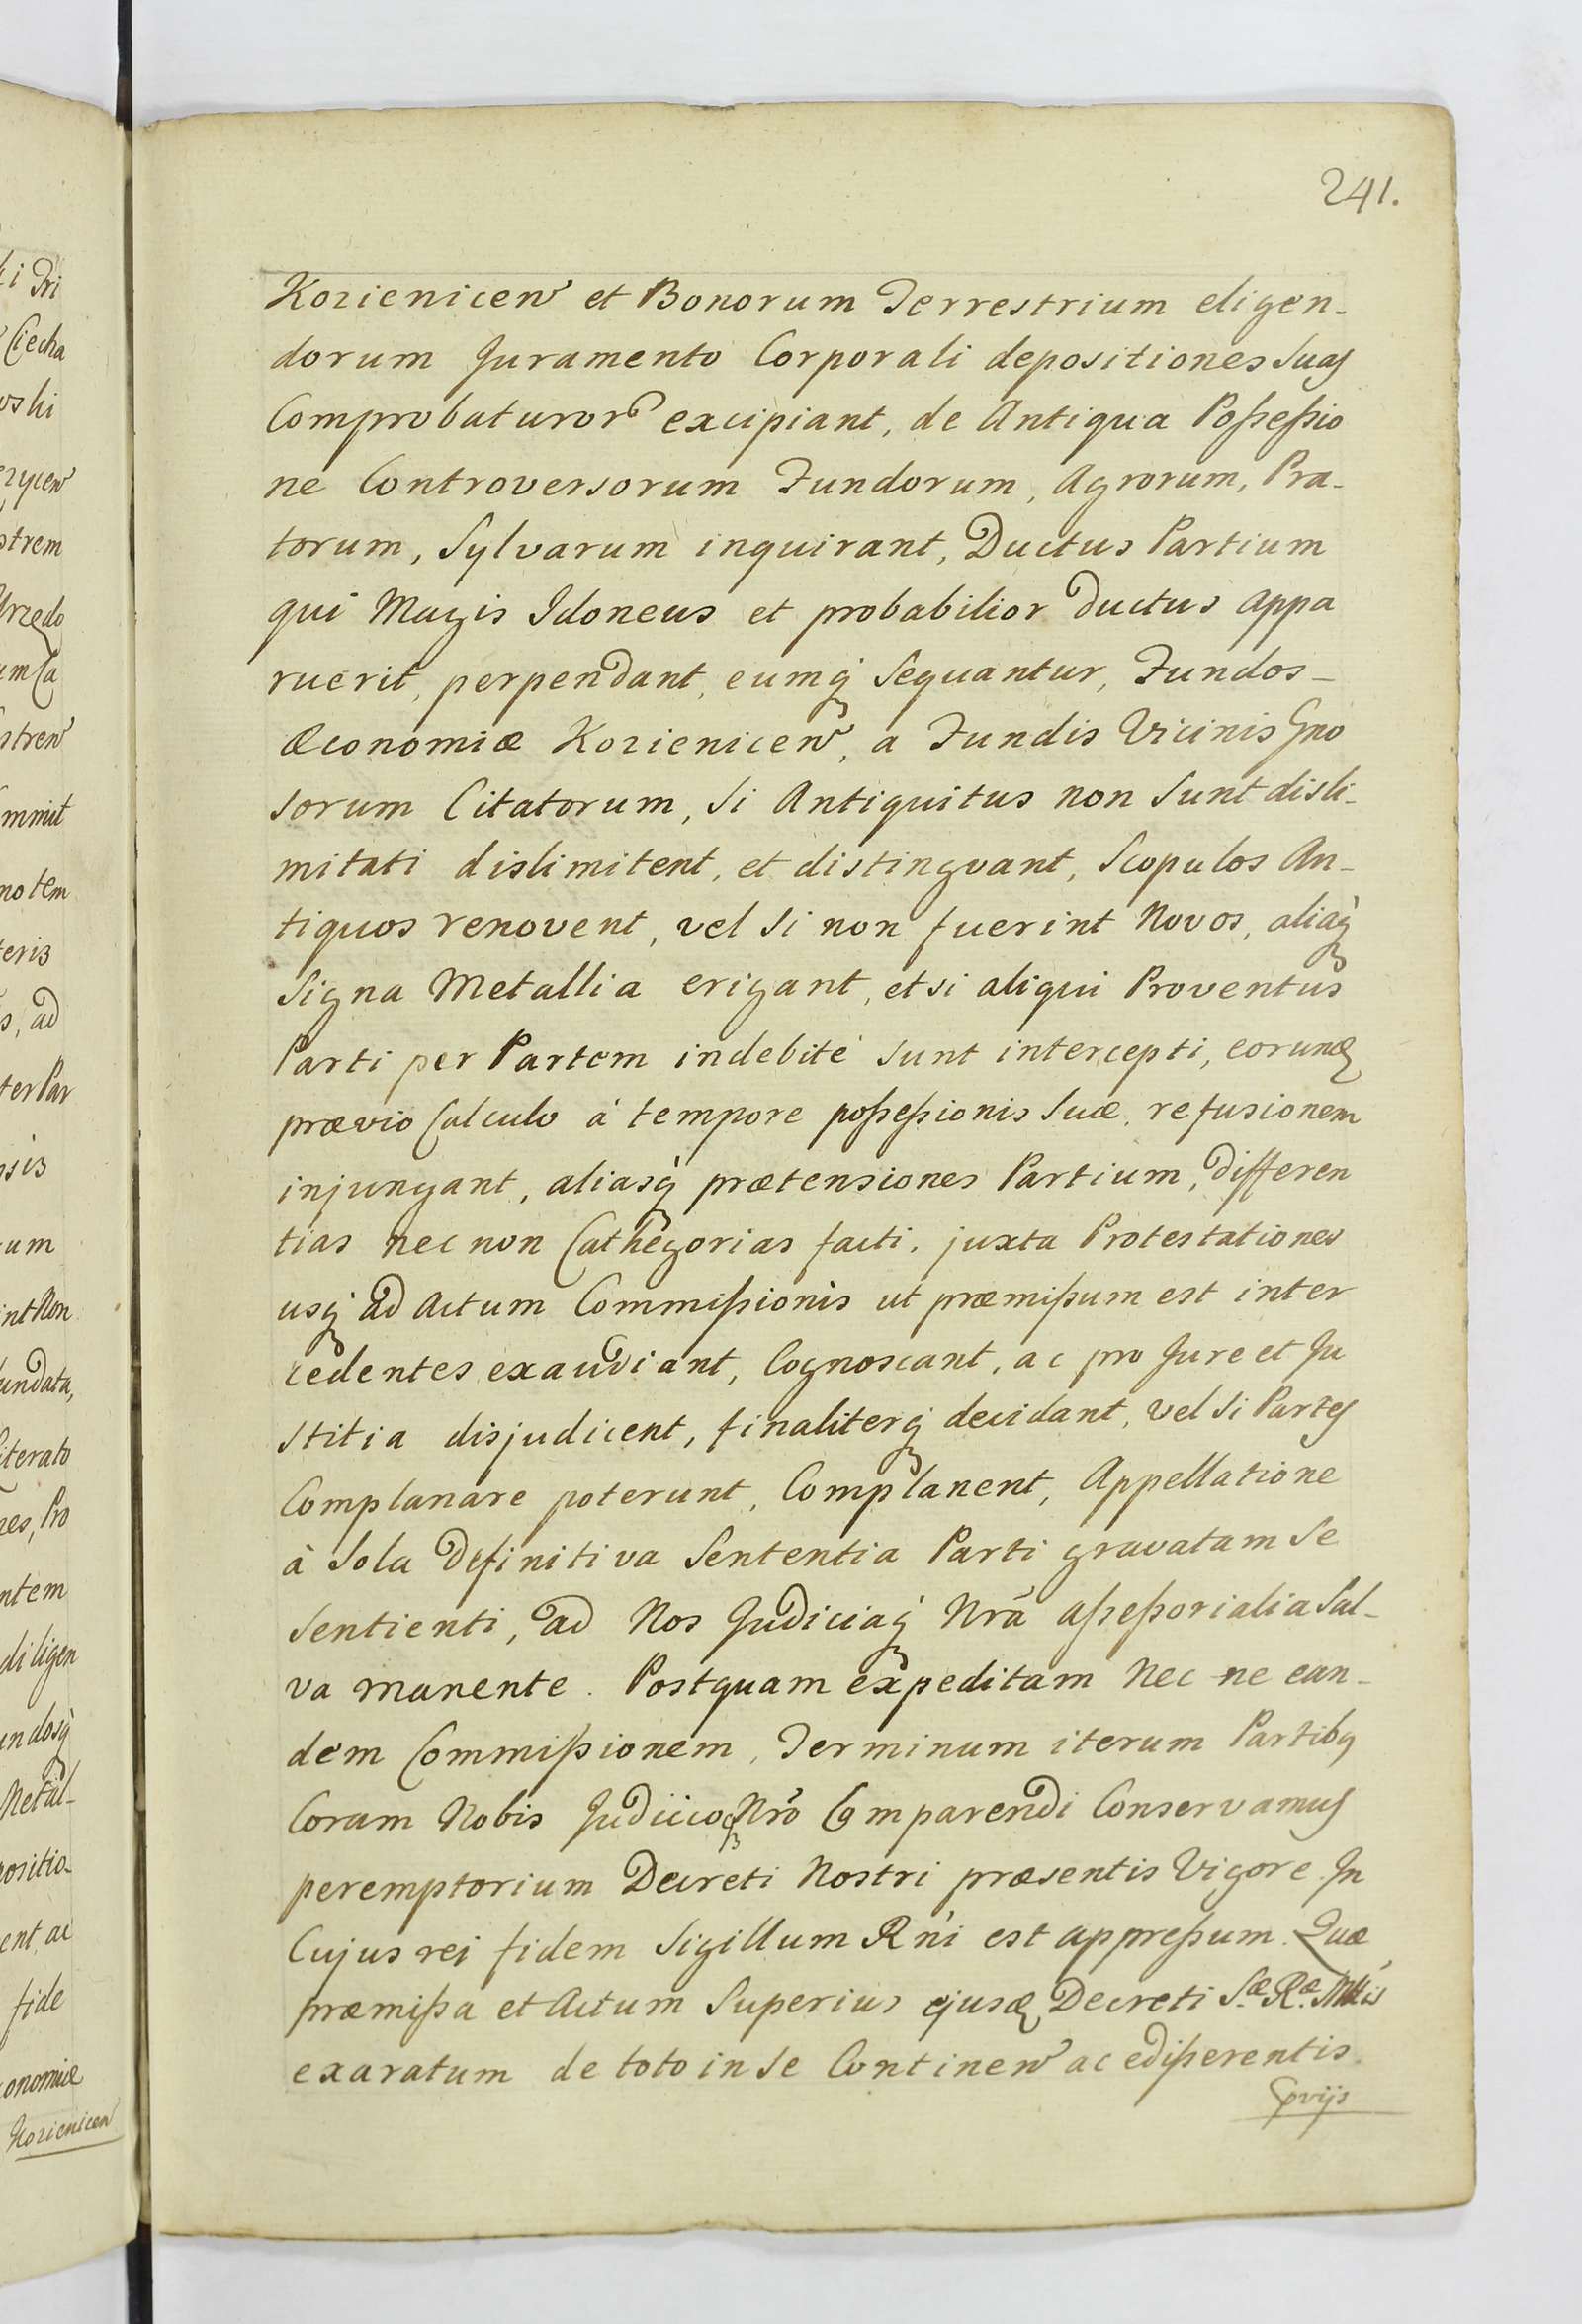 241.
Kozienicen͠ et Bonorum Terrestrium eligen-
dorum Juramento Corporali depositiones Suas
Comprobaturor͠ excipiant, de Antiqua Possessio
ne Controversorum Fundorum, Agrorum, Pra-
torum, Sylvarum inquirant, Ductus Partium
qui Magis Idoneus et probabilior ductus appa
ruerit, perpendant, eumq̃ Sequantur, Fundos-
Æconomiæ Kozienicen͠, a Fundis Vicinis Gno
sorum Citatorum, Si Antiquitus non Sunt disli-
mitati dislimitent, et distingvant, Scopulos An-
tiquos renovent, vel Si non fuerint Novos, aliaq̃
Signa Metallia erigant, et si aliqui Proventus
Parti per Partem indebité sunt intercepti, eorund
prævio Calculo à tempore possessionis Suæ, refusionem
injungant, aliasq̃ prætensiones Partium, differen
tias nec non Cathegorias facti, juxta Protestationes
usq̃ ad Actum Commissionis ut præmissum est inter
cedentes exaudiant, Cognoscant, ac pro Jure et Ju
stitia disjudicent, finaliterq̃ decidant, vel Si Partes
Complanare poterunt, Complanent, Appellatione
à Sola Definitiva Sententia Parti gravatam Se
Sentienti, ad Nos Judiciaq̃ Nrã assessorialia Sal-
va manente. Postquam expeditam Nec ne ean-
dem Commissionem, Terminum iterum Partibq
Coram Nobis Judicioq̃ Nrõ Comparendi Conservamus
peremptorium Decreti Nostri præsentis Vigore. In
Cujus rei fidem Sigillum Rñi est appressum. Quæ
præmissa et Actum Superius ejusd Decreti S.æ R.æ Mttis
exaratum de toto in Se Continen͠ ac edisserentis